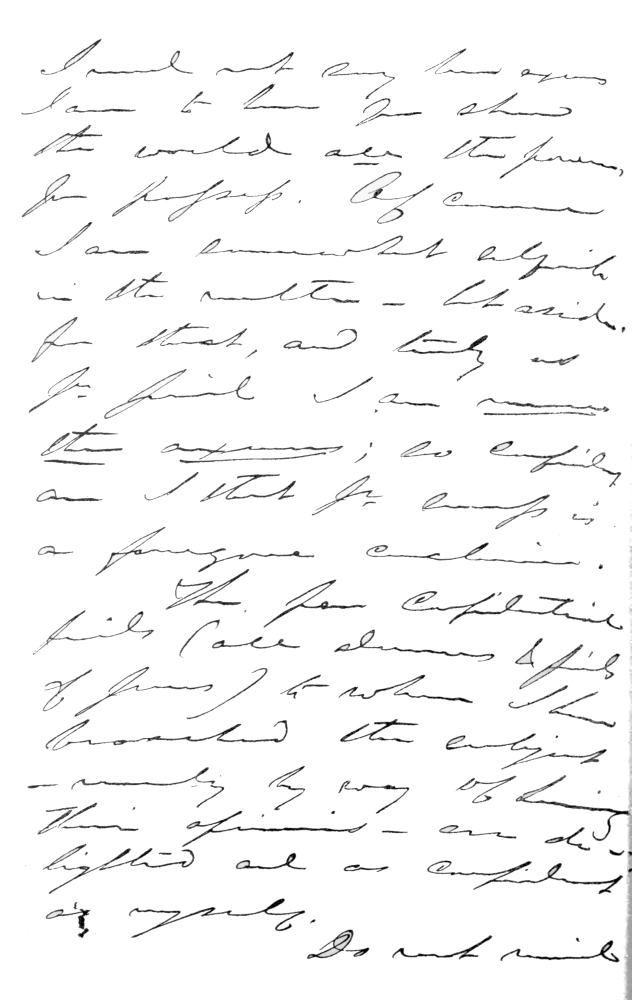 I need not say how anxious
I am to have you show
the world all the powers
you possess. Of course
I am somewhat selfish
in the matter — but aside
from that, and truly as
yr friend I am more
than anxious; so confident
am I that yr success is
a foregone conclusion.
The few confidential
friends (all admirers & friends
of yours) to whom I have
broached the subject
— merely by way of
their opinions — are de-
lighted and as confident
as myself.
Do not